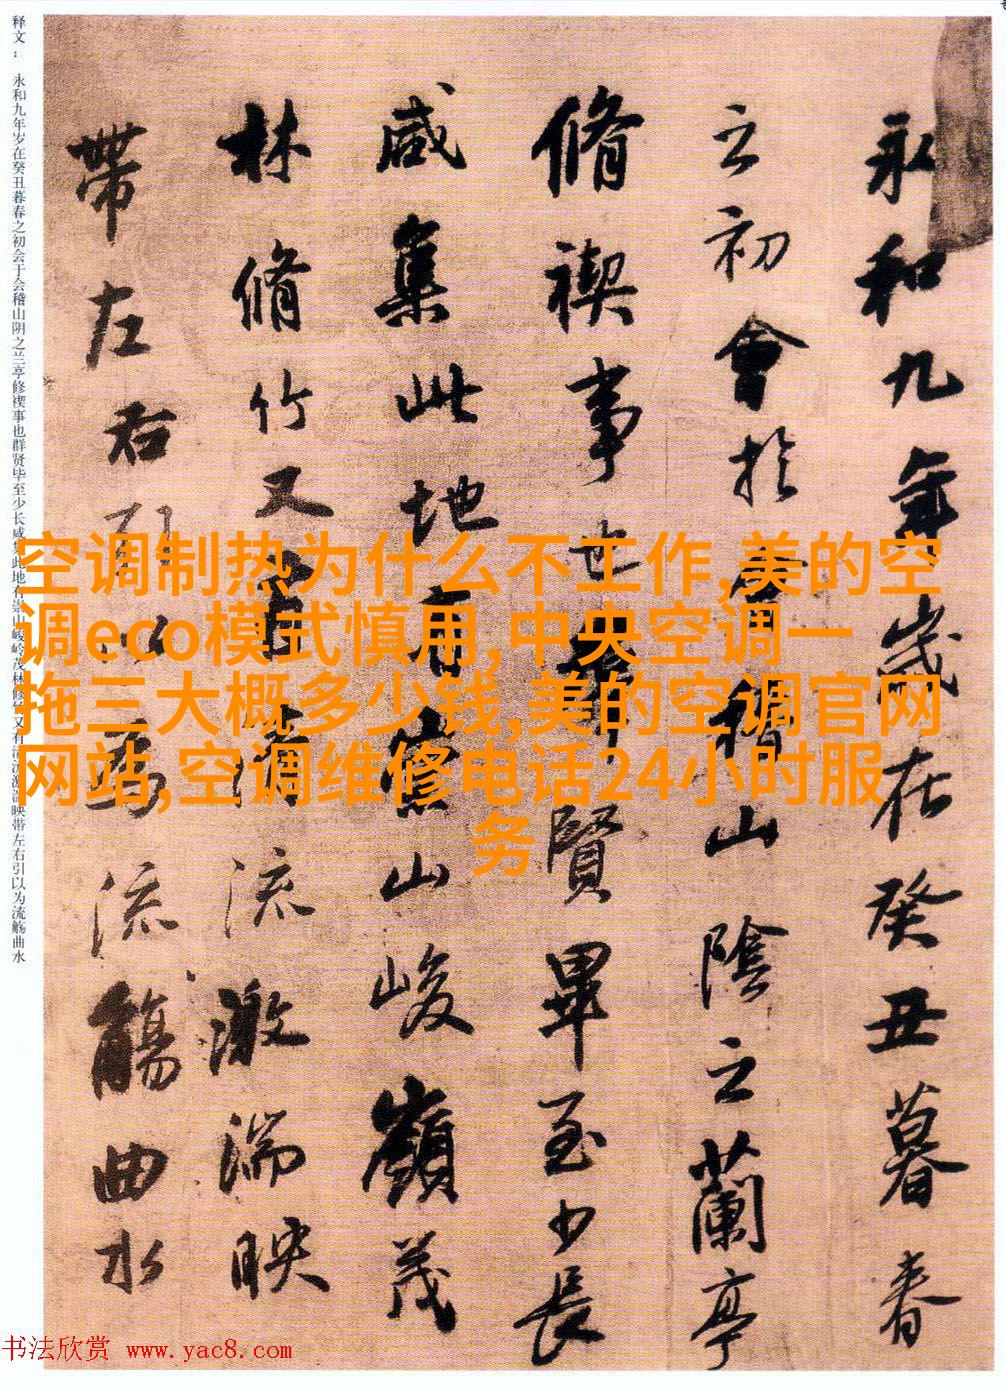 释文：永和九年岁在癸丑暮春之初会于会稽山阴之兰亭修禊事也群贤毕至少长咸集此地有崇山峻岭茂林修竹又有清流激湍映带左右引以为流觞曲水
永和九年歲在癸丑暮春
之初會於會稽山陰之蘭亭
脩禊事也羣賢畢至少長
咸集此地有崇山峻嶺茂
林脩竹又有清流激湍映
帶左右引以爲流觴曲水
空调制热为什么不工作,美的空
调eco模式慎用,中央空调一
拖三大概多少钱,美的空调官网
网站,空调维修电话24小时服
务
书法欣赏 www.yac8.com